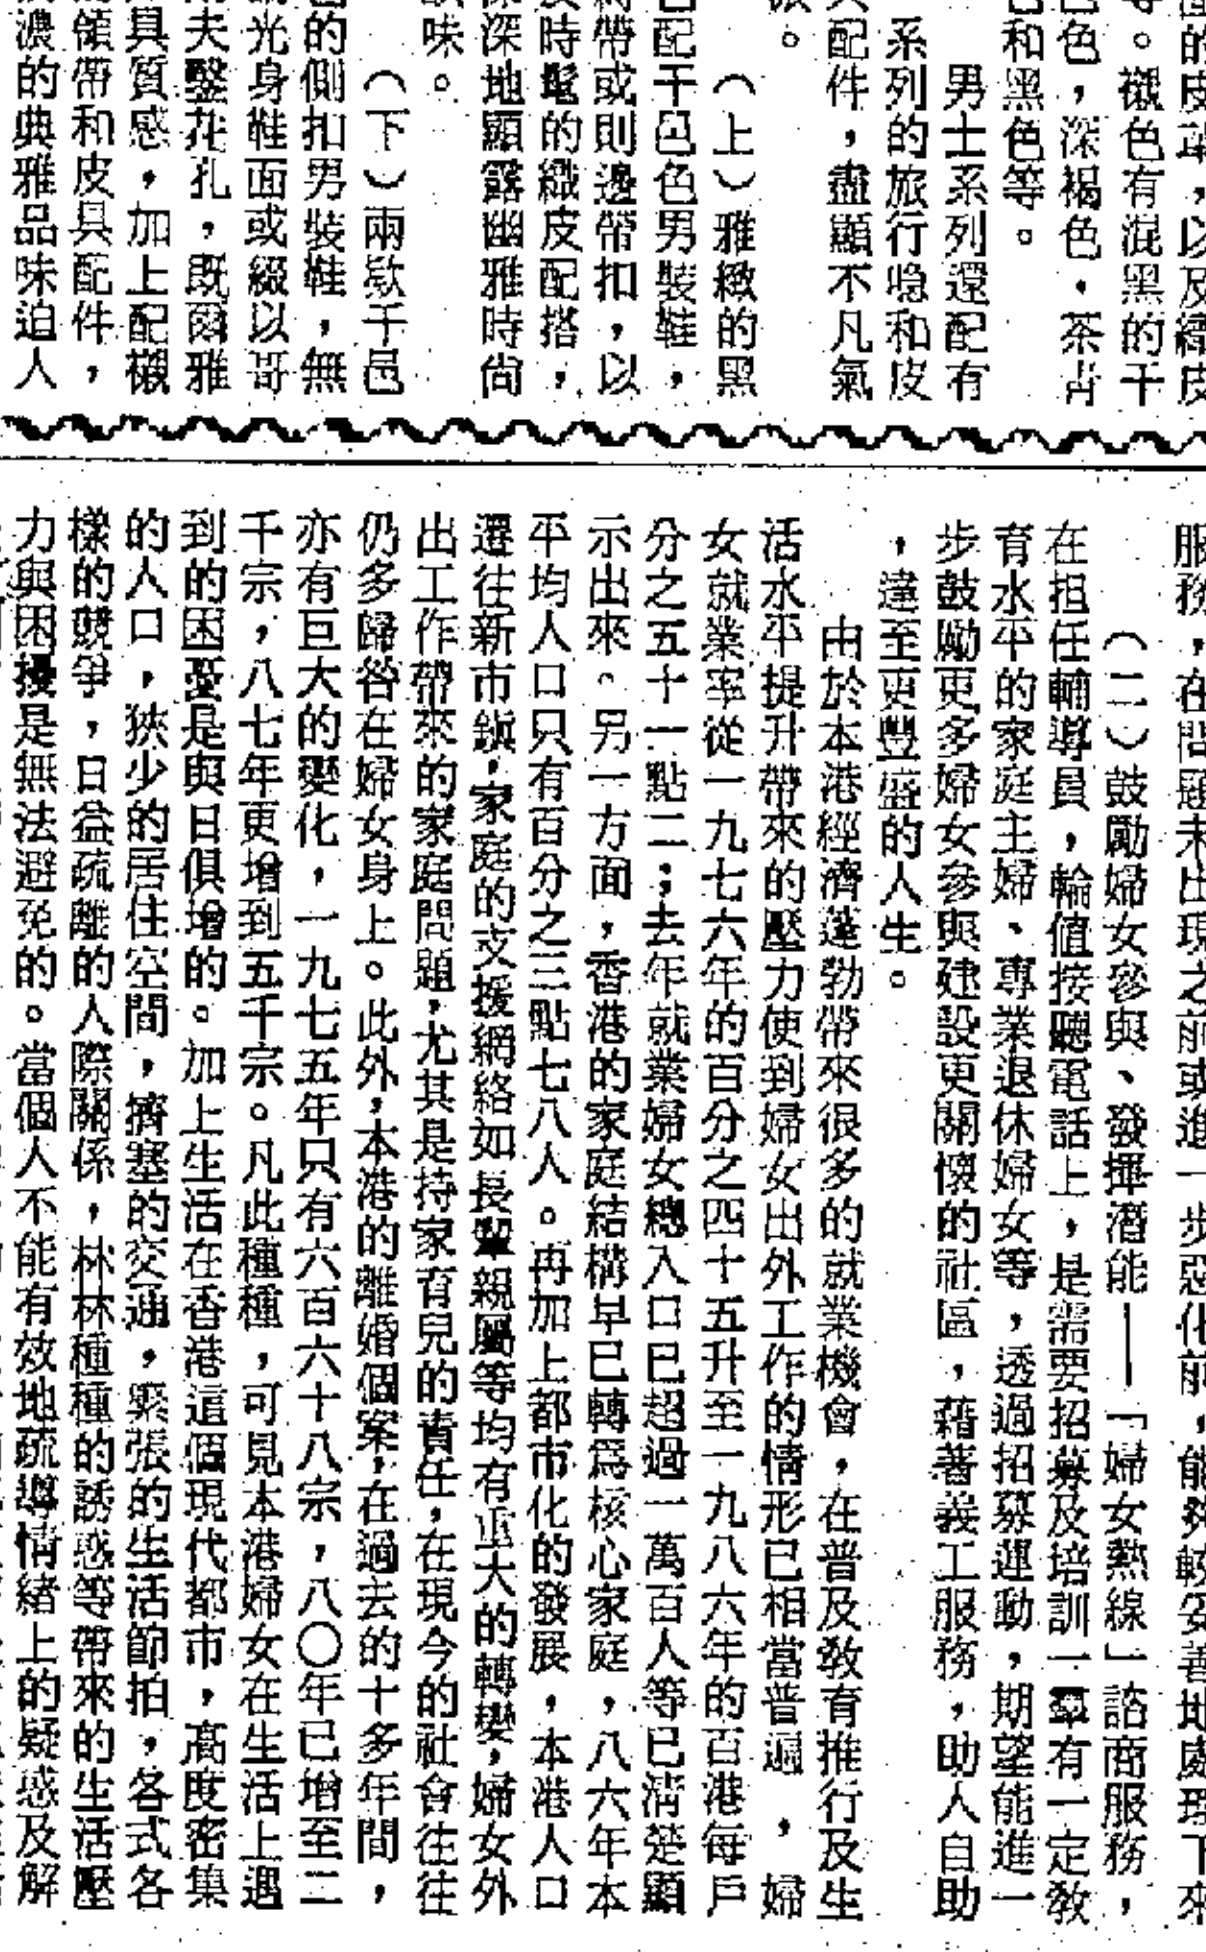 的皮革，以及繡皮
。襯色有混黑的干
色，深褐色，茶青
和黑色等。
男士系列還配有
系列的旅行喼和皮
配件，盡顯不凡氣
。
（上）雅緻的黑
配干邑色男裝鞋，
帶或則邊帶扣，以
時髦的織皮配搭，
深地顯露幽雅時尚
味。
（下）兩欵干邑
的側扣男裝鞋，無
光身鞋面或綴以哥
夫鑿花孔，既爾雅
具質感，加上配襯
領帶和皮具配件，
濃的典雅品味迫人
服務，在問題未出現之前或進一步惡化前，能夠較妥善地處理下來
（二）鼓勵婦女參與、發揮潛能——「婦女熱線」諮商服務，
在担任輔導員，輪值接聽電話上，是需要招募及培訓一羣有一定敎
育水平的家庭主婦、專業退休婦女等，透過招募運動，期望能進一
步鼓勵更多婦女參與建設更關懷的社區，藉著義工服務，助人自助
，達至更豐盛的人生。
由於本港經濟蓬勃帶來很多的就業機會，在普及敎育推行及生
活水平提升帶來的壓力使到婦女出外工作的情形已相當普遍，婦
女就業率從一九七六年的百分之四十五升至一九八六年的百港每戶
分之五十一點二；去年就業婦女總人口已超過一萬百人等已清楚顯
示出來。另一方面，香港的家庭結構早已轉爲核心家庭，八六年本
平均人口只有百分之三點七八人。再加上都市化的發展，本港人口
遷往新市鎭，家庭的支援網絡如長輩親屬等均有重大的轉變，婦女外
出工作帶來的家庭問題，尤其是持家育兒的責任，在現今的社會往往
仍多歸咎在婦女身上。此外，本港的離婚個案，在過去的十多年間，
亦有巨大的變化，一九七五年只有六百六十八宗，八〇年已增至二
千宗，八七年更增到五千宗。凡此種種，可見本港婦女在生活上遇
到的困憂是與日俱增的。加上生活在香港這個現代都市，高度密集
的人口，狹少的居住空間，擠塞的交通，緊張的生活節拍，各式各
樣的競爭，日益疏離的人際關係，林林種種的誘惑等帶來的生活壓
力與困擾是無法避免的。當個人不能有效地疏導情緒上的疑惑及解